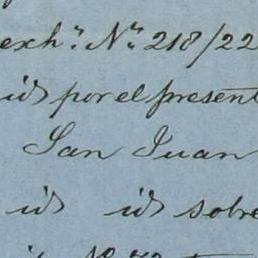 exh.n Nn 218/22
id por el present
San Juan
id id sobre